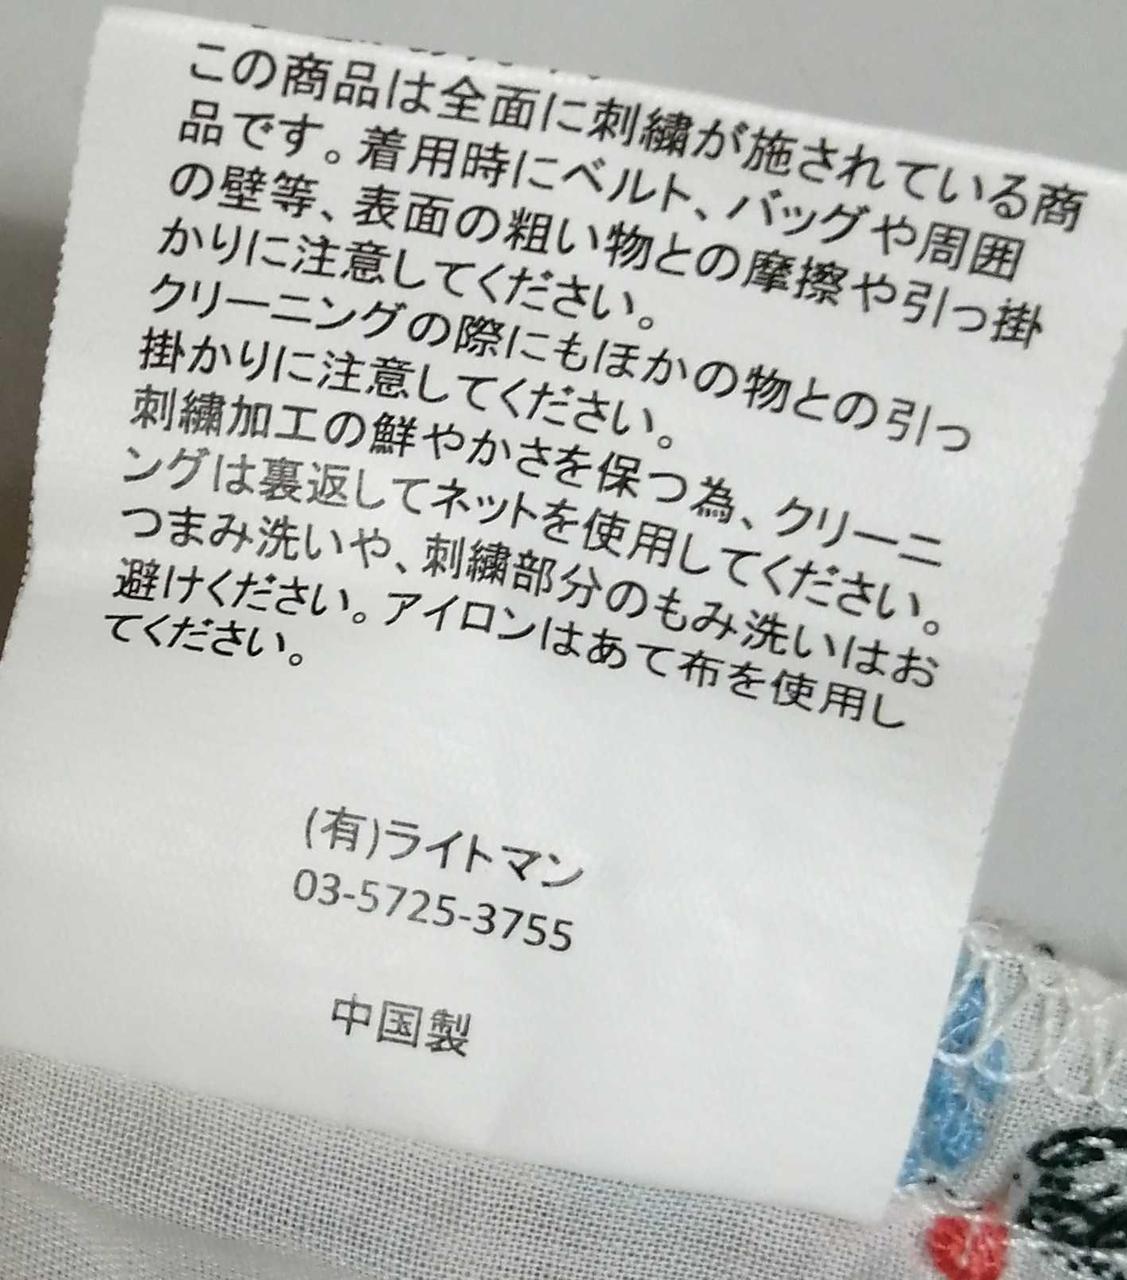 この商品は全面に刺繍が施されている商
品です。着用時にベルト、バッグや周囲
の壁等、表面の粗い物との摩擦や引っ掛
かりに注意してください。
クリーニングの際にもほかの物との引っ
掛かりに注意してください。
刺繍加工の鮮やかさを保つ為、クリーニ
ングは裏返してネットを使用してください。
つまみ洗いや、刺繍部分のもみ洗いはお
避けください。アイロンはあて布を使用し
てください。
(有)ライトマン
03-5725-3755
中国製